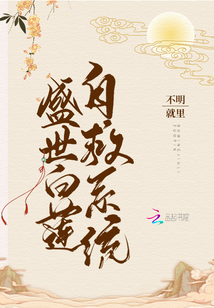 盛世白莲
自救系统
不明
就里
云起书院